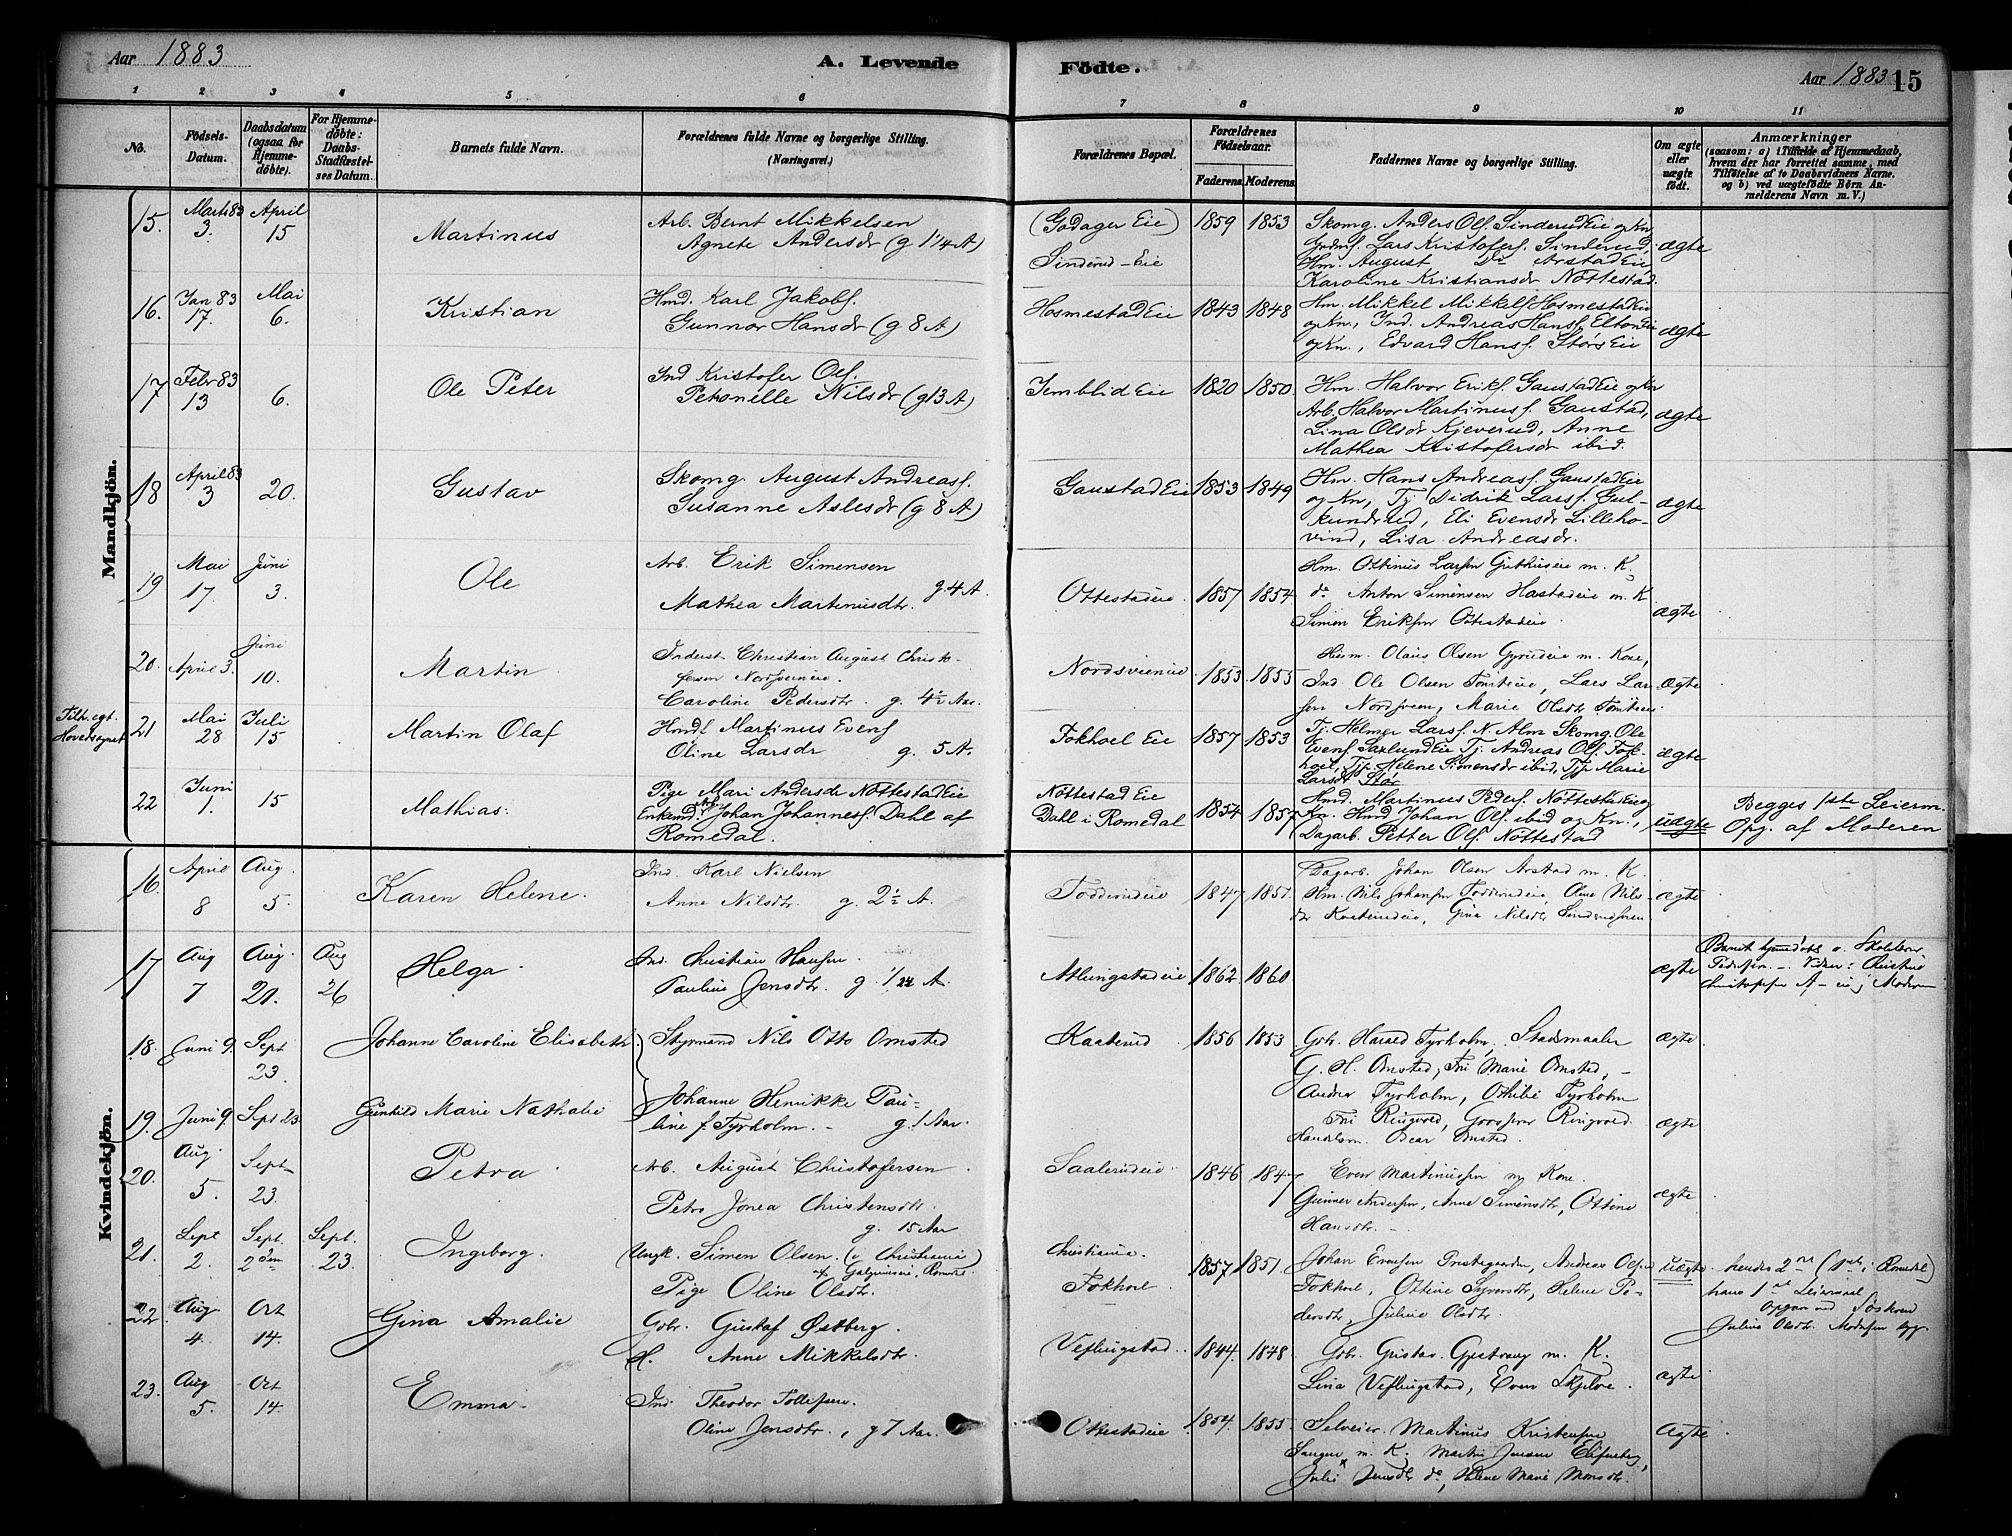 Aar 1883
A. Levende Födte.
Aar 1883 15
1 2 3 4 5 6 7 8 9 10 11
No.
Födsels-Datum.
Daabsdatum (ogsaa for Hjemmedöbte).
For Hjemmedöbte: Daabs-Stadfæstelses Datum.
Barnets fulde Navn.
Forældrenes fulde Navne og borgerlige Stilling. (Næringsvei.)
Forældrenes Bopæl.
Forældrenes Födselsaar.
Faderens. Moderens.
Faddernes Navne og borgerlige Stilling.
Om ægte eller uægte födt.
Anmærkninger
(saasom: a) i Tilfælde af Hjemmedaab, hvem der har forrettet samme, med Tilföielse af to Daabsvidners Navne. og b) ved uægtefödte Börn Anmelderens Navn m. V.)
Mandkjön.
15. Marts 83 3. April 15 Martinus
Arb. Bernt Mikkelsen
Agnete Andersdr (g 1 1/4 A)
(Godager Eie)
Sinderud-Eie
1859 1853
Skomg. Anders Olss. Sinderud Eie og Kn
Lars Kristofers. Sinderud,
Hm. August Do Arstad Eie
Karoline Kristiansdr Nöttestad.
ægte
16. Jan 83 17. Mai 6. Kristian
Hmd. Karl Jakobs.
Gunnor Hansdr (g 8 A)
Hosmestad Eie 1843 1848
Hm. Mikkel Mikkels Hosmestad Eie
og Kn., Ind. Andreas Hans. Elton Eie
og Kn., Edvard Hans. Störs Eie
ægte
17 Febr 83 13 6. Ole Peter
Ind Kristofer Ols
Petronelle Nilsdr (g 13 A)
Jemblid Eie 1820 1850.
Hm. Halvor Eriks. Gaustad Eie og Kn
Arb. Halvor Martinus. Gaustad,
Lina Olsdr Kjeverud, Anne
Mathea Kristofersdr ibid.
ægte
18 April 83 3 20. Gustav
Skomg August Andreas.
Susanne Aslesdr (g 8 A)
Gaustad Eie 1853 1849
Hm. Hans Andreas. Gaustad Eie
og Kn, Tj. Didrik Lars. Gul-
kundrud, Eli Evensdr Lilleho-
vind, Lisa Andreasdr.
ægte
19 Mai 17. Juni 3. Ole
Arb. Erik Simensen
Mathea Martinusdtr. g. 4 A.
Ottestadeie 1857 1854
Hm. Ottinus Larsen m. K.
do Anton Simensen Hastadeie m. K
Simen Eriksen Ottestadeie
ægte
20. April 3. Juni 10. Martin
Inderst Christian August Christo-
fersen Nordsveneie.
Caroline Pedersdtr. g. 4½ Aar.
Nordsveneie 1853. 1855
Husm. Olaus Olsen m. Kone,
Ind. Ole Olsen Tomteeie, Lars Lar
sen Nordsveen, Marie Olsdtr Tomteeie
ægte
Tilh. egt. Hovedsognet
21 Mai 28 Juli 15 Martin Olaf
Hmd Martinus Evens
Oline Larsdr g. 5 A.
Fokhoel Eie 1857 1853
Tj. Helmer Lars. N. Alm Skomg. Ole
Evens. Saxlund Eie Tj. Andreas Ols. Fok-
hoel, Tjp. Helene Simensdr ibid, Tjp Marie
Larsdr Stör
ægte
22 Juni 1. 15 Mathias.
Pige Mari Andersdr Nöttestad Eie
Enkemd. Arb. Johan Johannes. Dahl af
Romedal.
Nöttestad Eie
Dahl i Romedal
1854 1857
Hmd. Martinus Peders. Nöttestad Eie og
Kn. Hmd Johan Ols. ibid og Kn.,
Dagarb. Petter Ols. Nöttestad
uægte
Begges 1ste Leierm.
Opg. af Moderen
Kvindekjön.
16. April 8 Aug. 5. Karen Helene.
Ind. Karl Nielsen
Anne Nilsdtr. g. 2½ A.
Todderudeie 1847 1851.
Dagarb. Johan Olsen Arstad m. K.
Hm. Nils Johansen Todderudeie, Oline Nils-
dtr Kaaterudeie, Gina Nilsdtr
ægte
17 Aug 7 Aug. 20. Aug 26 Helga.
Ind. Christian Hansen.
Pauline Jensdtr. g. 1/24 A.
Atlungstadeie 1862 1860
ægte
18. Juni 9. Sept 23. Johanne Caroline Elisabeth
Styrmand Nils Otto Omsted
Kaaterud 1856 1853
Gbr. Harald Tyrholm, Stadsmaaler
G. H. Omsted, Frk Marie Omsted, -
Andrea Tyrholm, Othilie Tyrholm
ægte
19. Juni 9. Sept 23. Gunhild Marie Nathalie
Johanne Henrikke Pau-
line f. Tyrholm. - g. 1 Aar.
Frk Ringvold, Ringvold
Handelsm. Omsted.
ægte
20. Aug. 5. Sept 23. Petra
Arb. August Christofersen
Petra Jonea Christensdtr.
g. 15 Aar
Saalerudeie 1846 184
Even Martinussen m. Kone.
Gunner Andersen, Anne Simensdtr, Ottine
Hansdtr. -
ægte
21. Sept 2. Sept. 2den Sept. 23. Ingeborg.
Ungk. Simen Olsen. (i Christiania)
Pige Oline Olsdtr.
Christiania.
Fokhoel
1857 1851.
Johan Evensen Prestegaarden, Andreas Olsen
Fokhoel, Ottine Syversdtr, Helene Pe-
dersdtr, Juline Olsdtr.
uægte
hendes 2den (1ste i Romedal)
hans 1ste Leiermaal
22. Aug 4. Oct 14. Gina Amalie
Gbr. Gustaf Østberg.
H. Anne Mikkelsdtr.
Veflingstad. 1844. 1848.
Gbr. Gustav m. K.
Lina Veflingstad, Even Skjelve.
ægte
23. Aug 5. Oct 14. Emma.
Ind. Theodor Tollefsen.
Oline Jensdtr., g 7 Aar.
Ottestadeie 1854. 1855.
Selveier Martinus Kristensen
m. K. Martin Jensen
Julie Jensdtr do, Helene Marie Monsdtr.
ægte